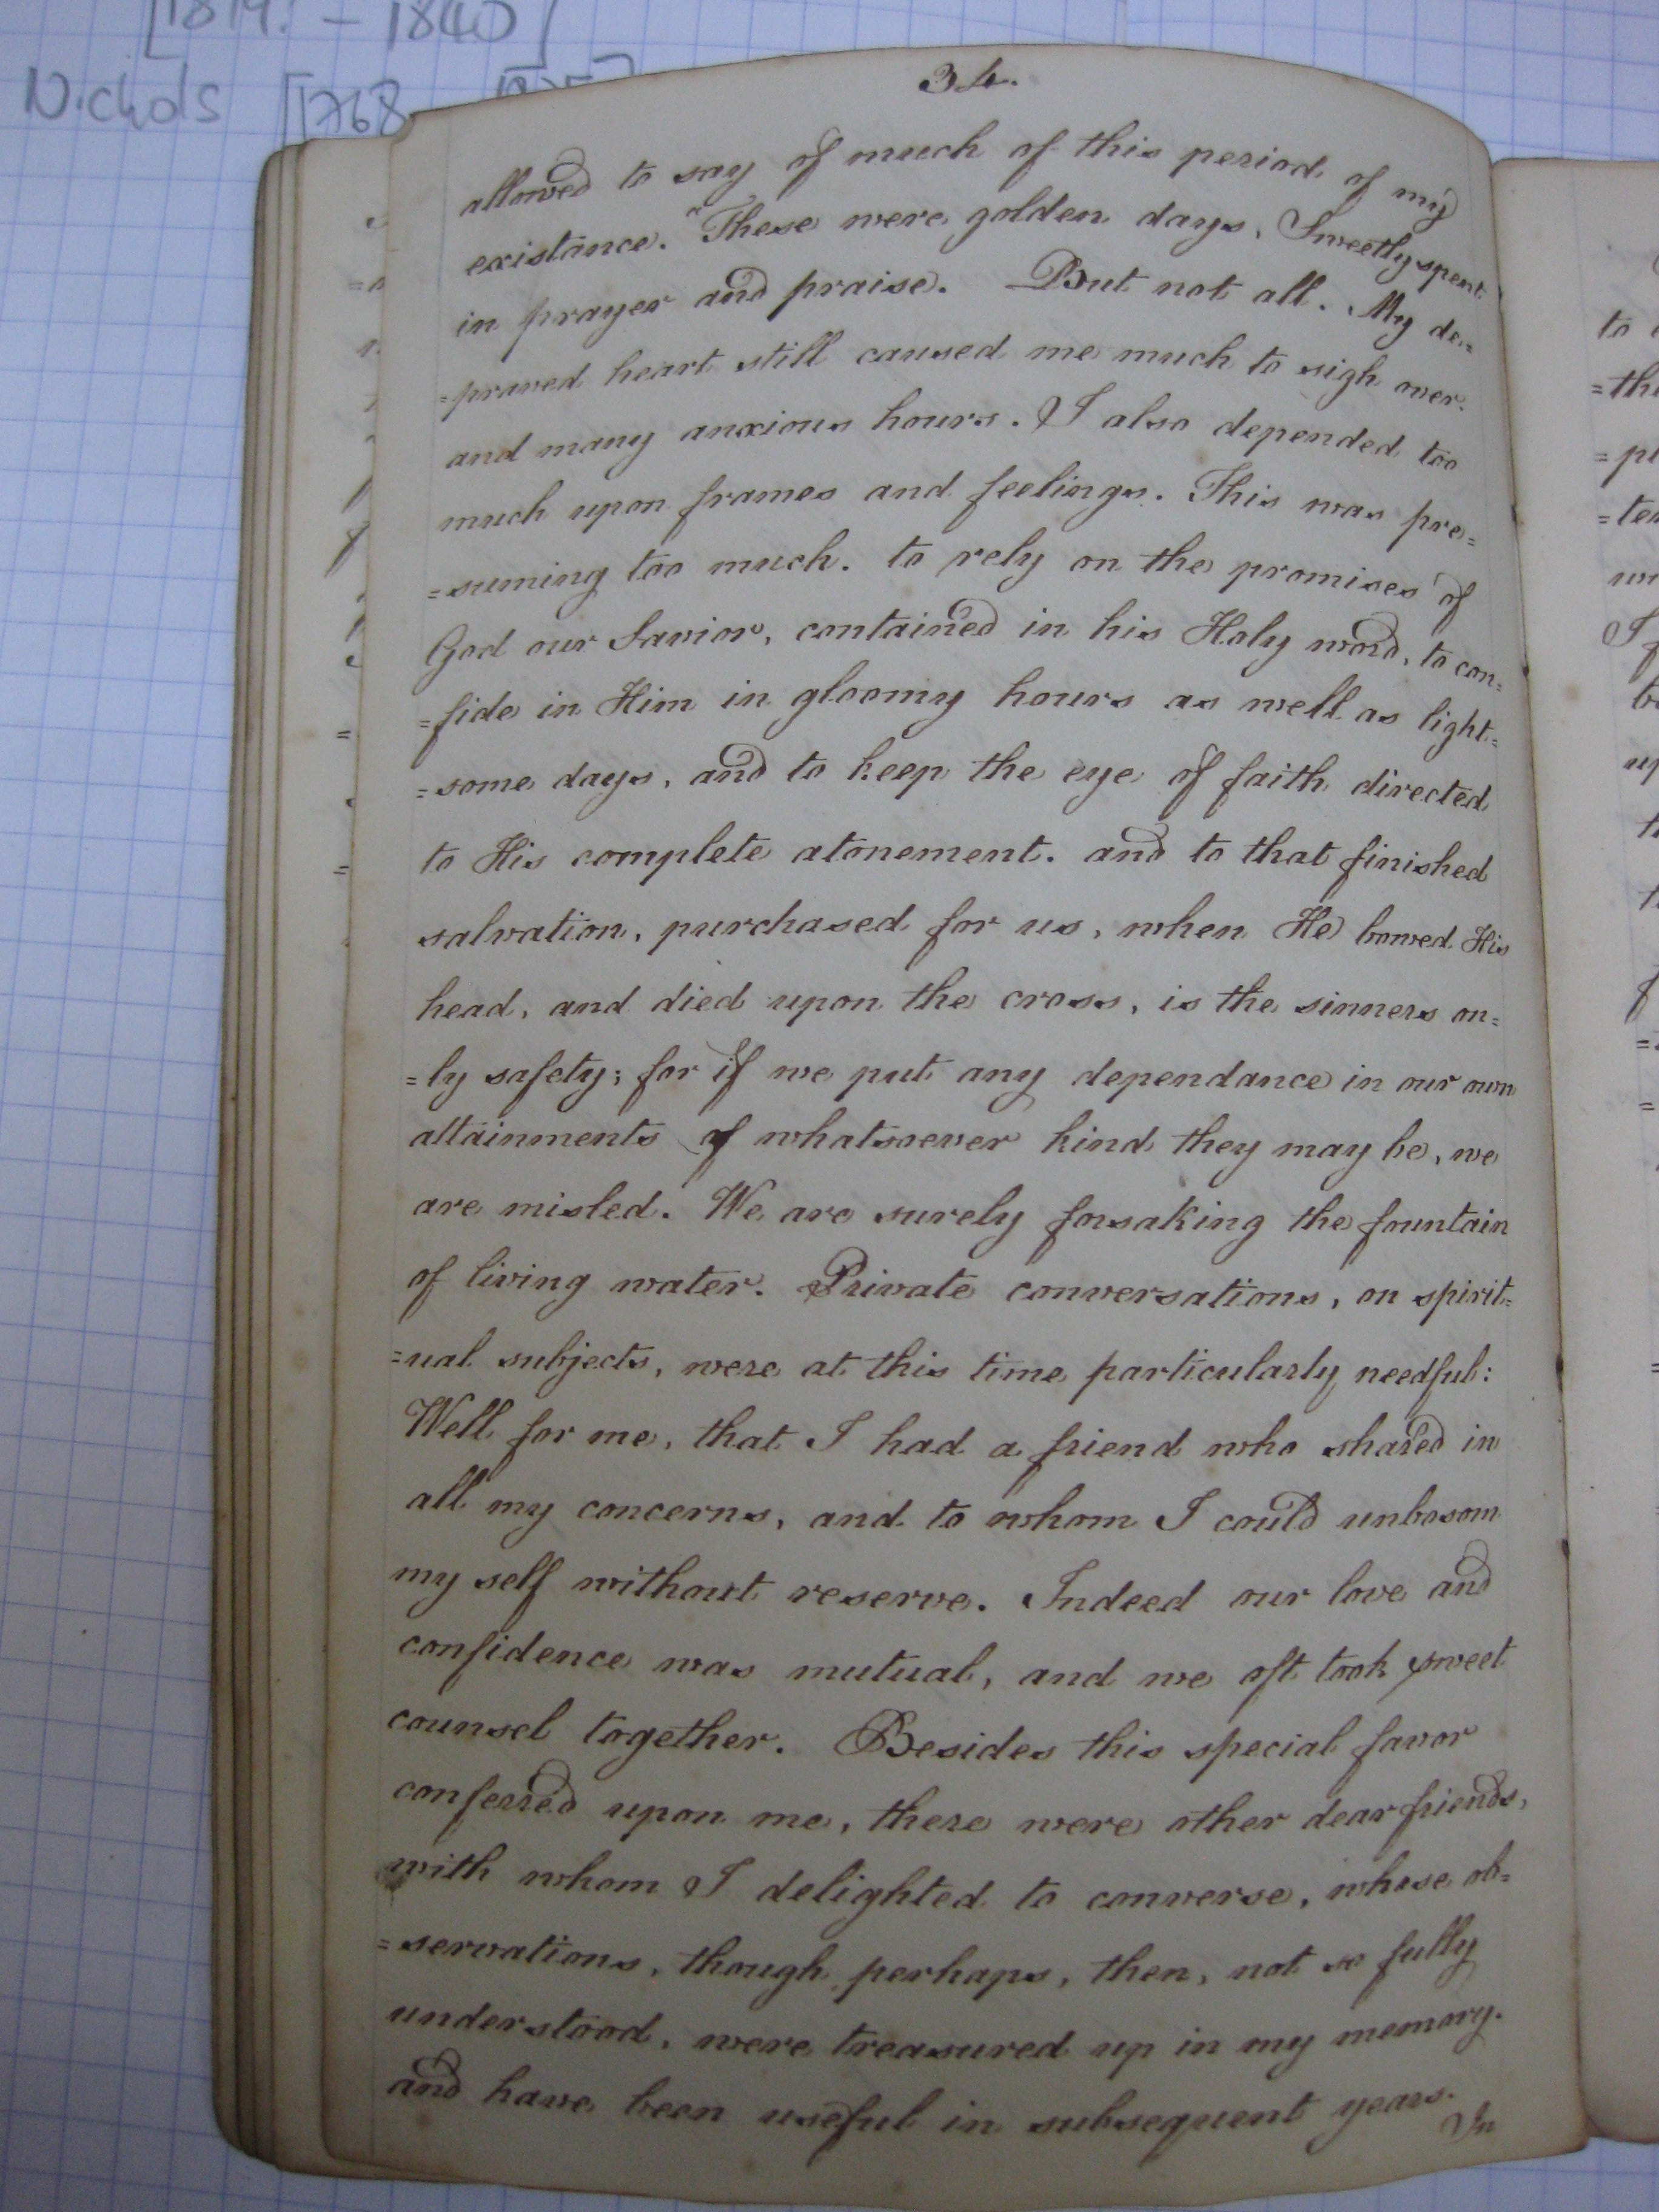 [1819? - 1840]
Nichols [1768
34.
allowed to say of much of this period of my
existance. "These were golden days, Sweetly spent
in prayer and praise. But not all. My de=
=praved heart still caused me much to sigh over.
and many anxious hours. I also depended too
much upon frames and feelings. This was pre=
=suming too much. to rely on the promises of
God our Savior, contained in his Holy word, to con=
=fide in Him in gloomy hours as well as light=
=some days, and to keep the eye of faith directed
to His complete atonement. and to that finished
salvation, purchased for us, when He bowed His
head, and died upon the cross, is the sinners on=
=ly safety; for if we put any dependance in our own
attainments of whatsoever kind they may be, we
are misled. We are surely forsaking the fountain
of living water. Private conversations, on spirit=
=ual subjects, were at this time particularly needful:
Well for me, that I had a friend who shared in
all my concerns, and to whom I could unbosom
my self without reserve. Indeed our love and
confidence was mutual, and we oft took sweet
counsel together. Besides this special favor
conferred upon me, there were other dear friends,
with whom I delighted to converse, whose ob=
=servations, though perhaps, then, not so fully
understood, were treasured up in my memory.
and have been useful in subsequent years.
In
to
=th
=p
=te
I f